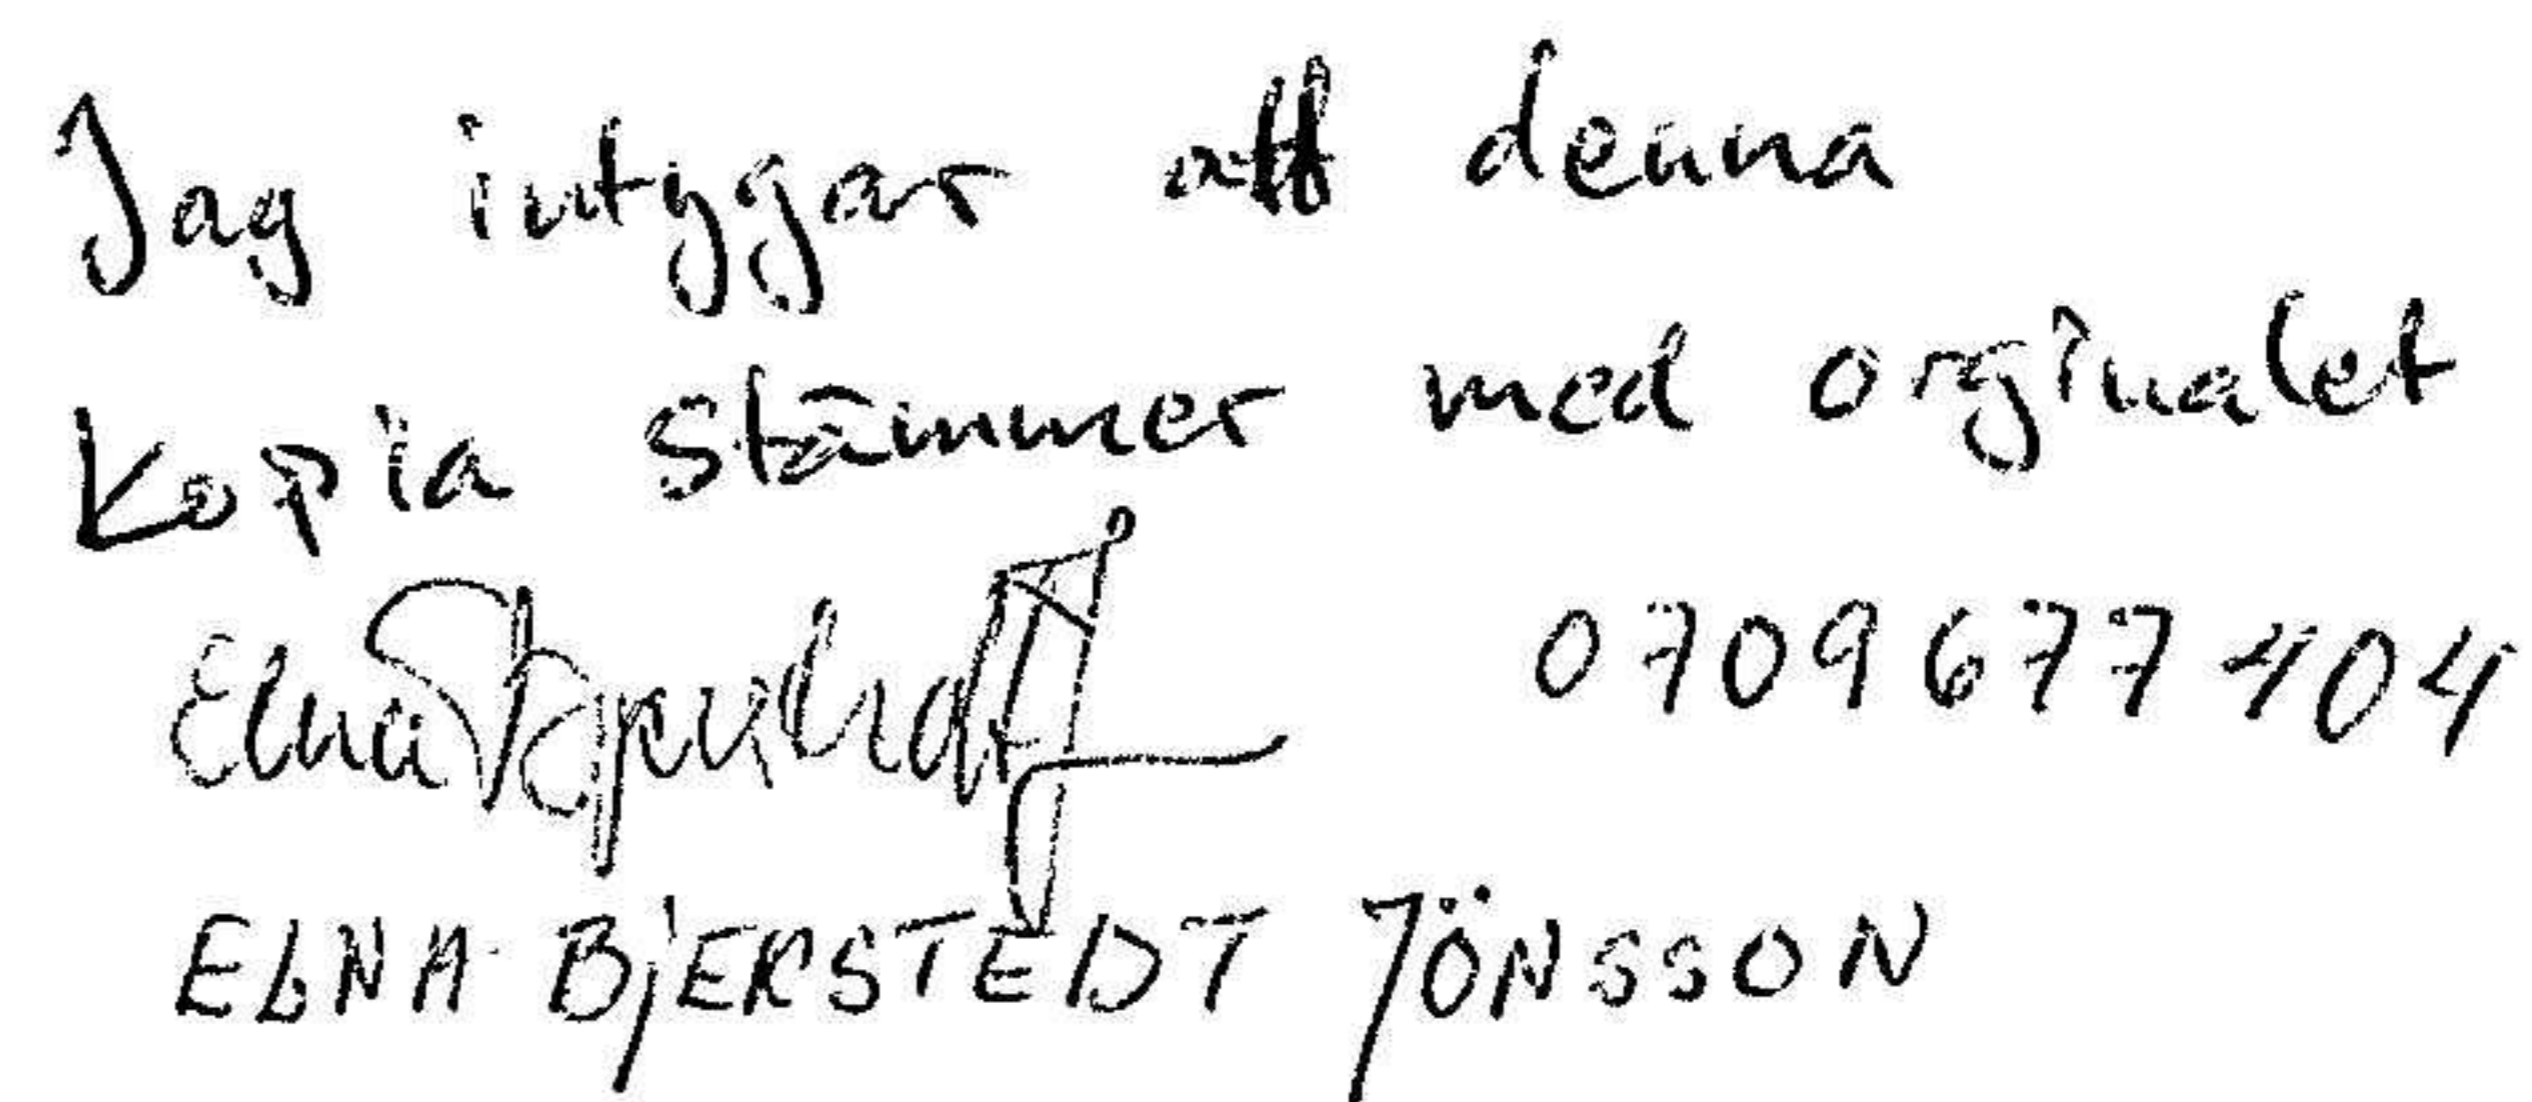 Jag intygar att denna
kopia stämmer med orginalet
Elna 0709677404
ELNA BJERSTEDT JÖNSSON